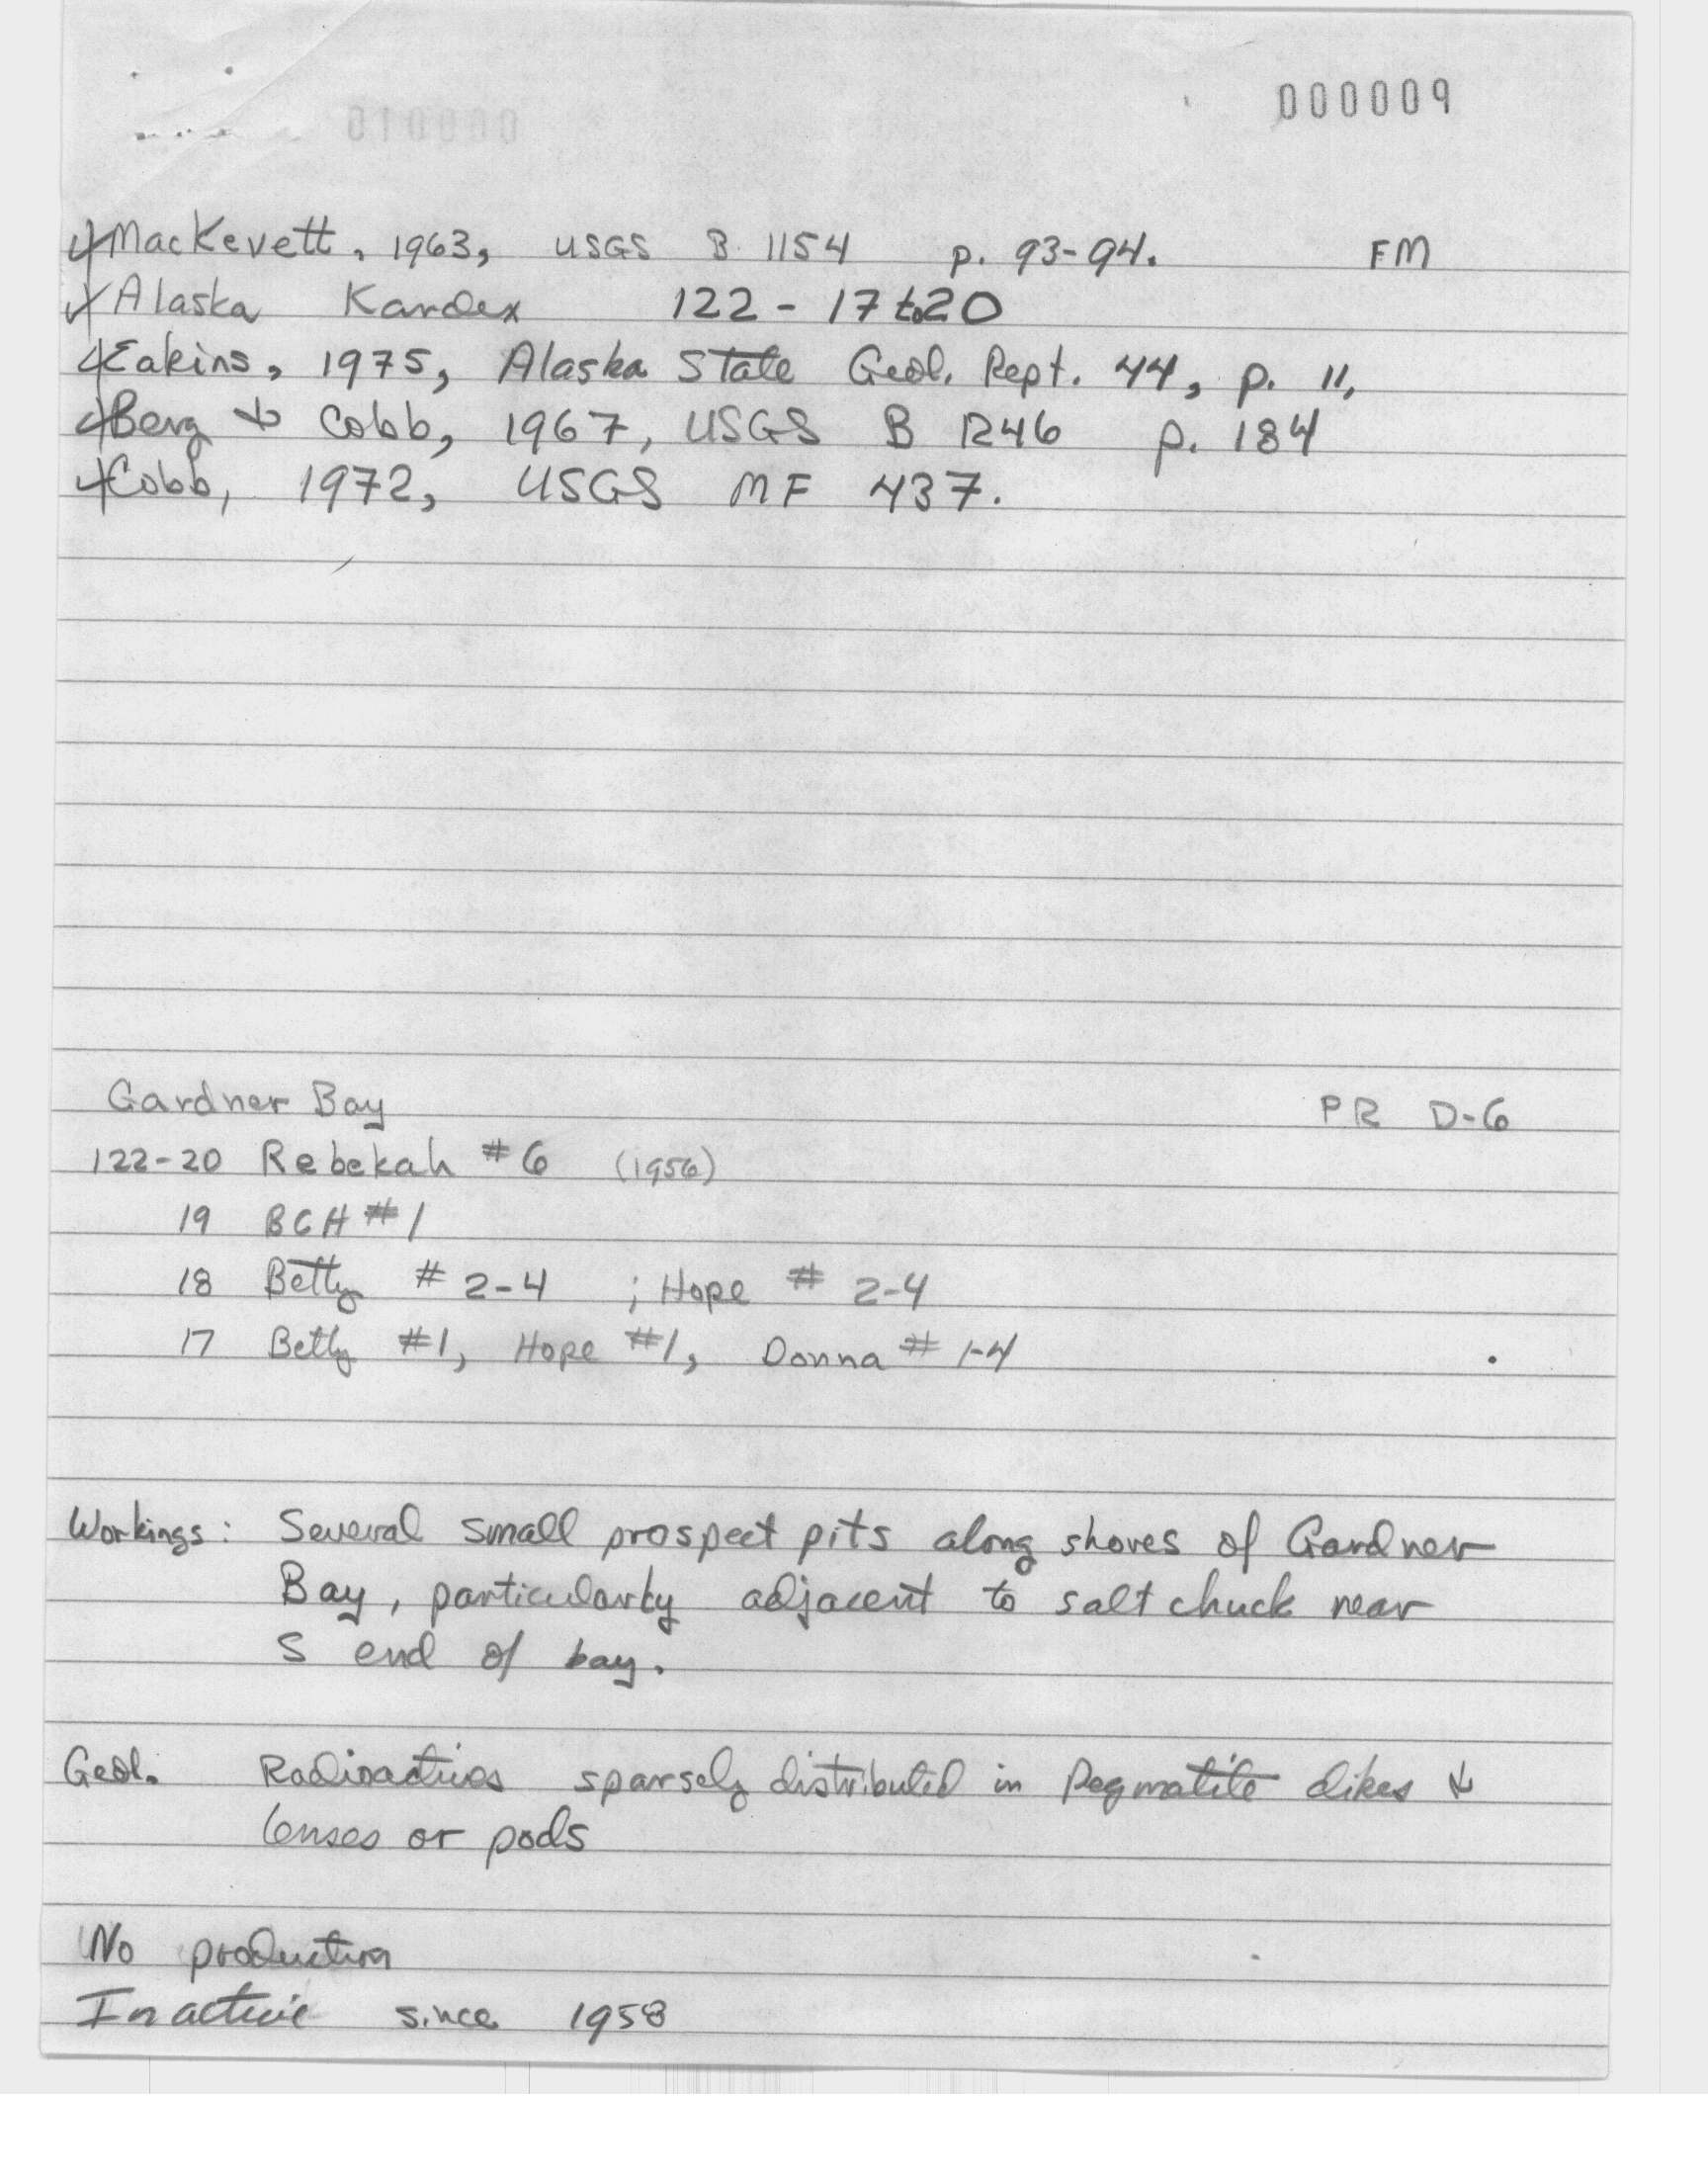 000009
MacKevett, 1963, USGS B 1154 p. 93-94. FM
Alaska Kardex 122 - 17 to 20
Eakins, 1975, Alaska State Geol. Rept. 44, p. 11,
Berg & Cobb, 1967, USGS B 1246 p. 184
Cobb, 1972, USGS MF 437.
Gardner Bay PR D-6
122-20 Rebekah #6 (1956)
19 BCH #1
18 Betty # 2-4 ; Hope # 2-4
17 Betty #1, Hope #1, Donna # 1-4
Workings: Several small prospect pits along shores of Gardner
Bay, particularly adjacent to salt chuck near
S end of bay.
Geol. Radioactives sparsely distributed in Pegmatite dikes &
lenses or pods
No production
Inactive since 1958